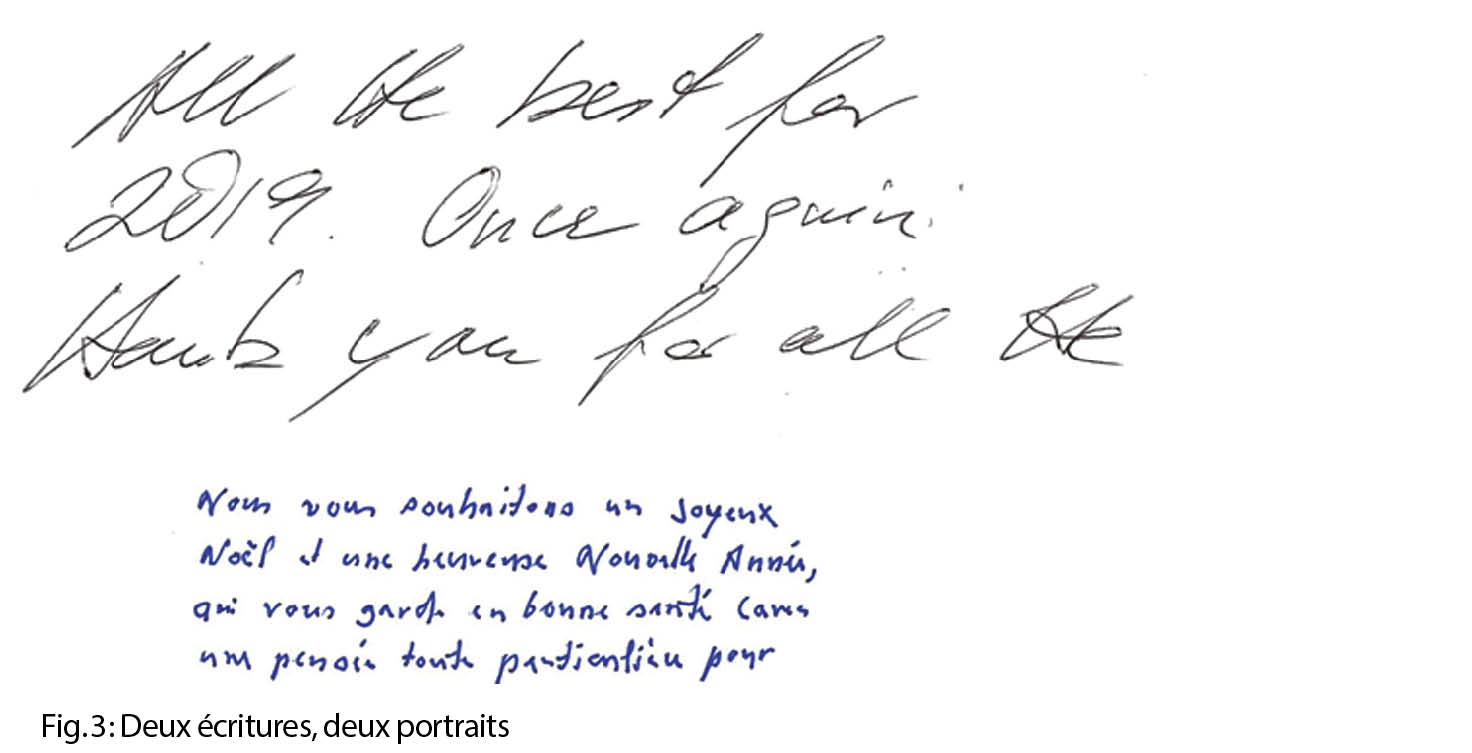 All the best for
2019. Once again:
thank you for all the
Nous vous souhaitons un joyeux
Noël et une heureuse Nouvelle Année,
qui vous garde en bonne santé
une pensée toute particulière pour
Fig.3: Deux écritures, deux portraits